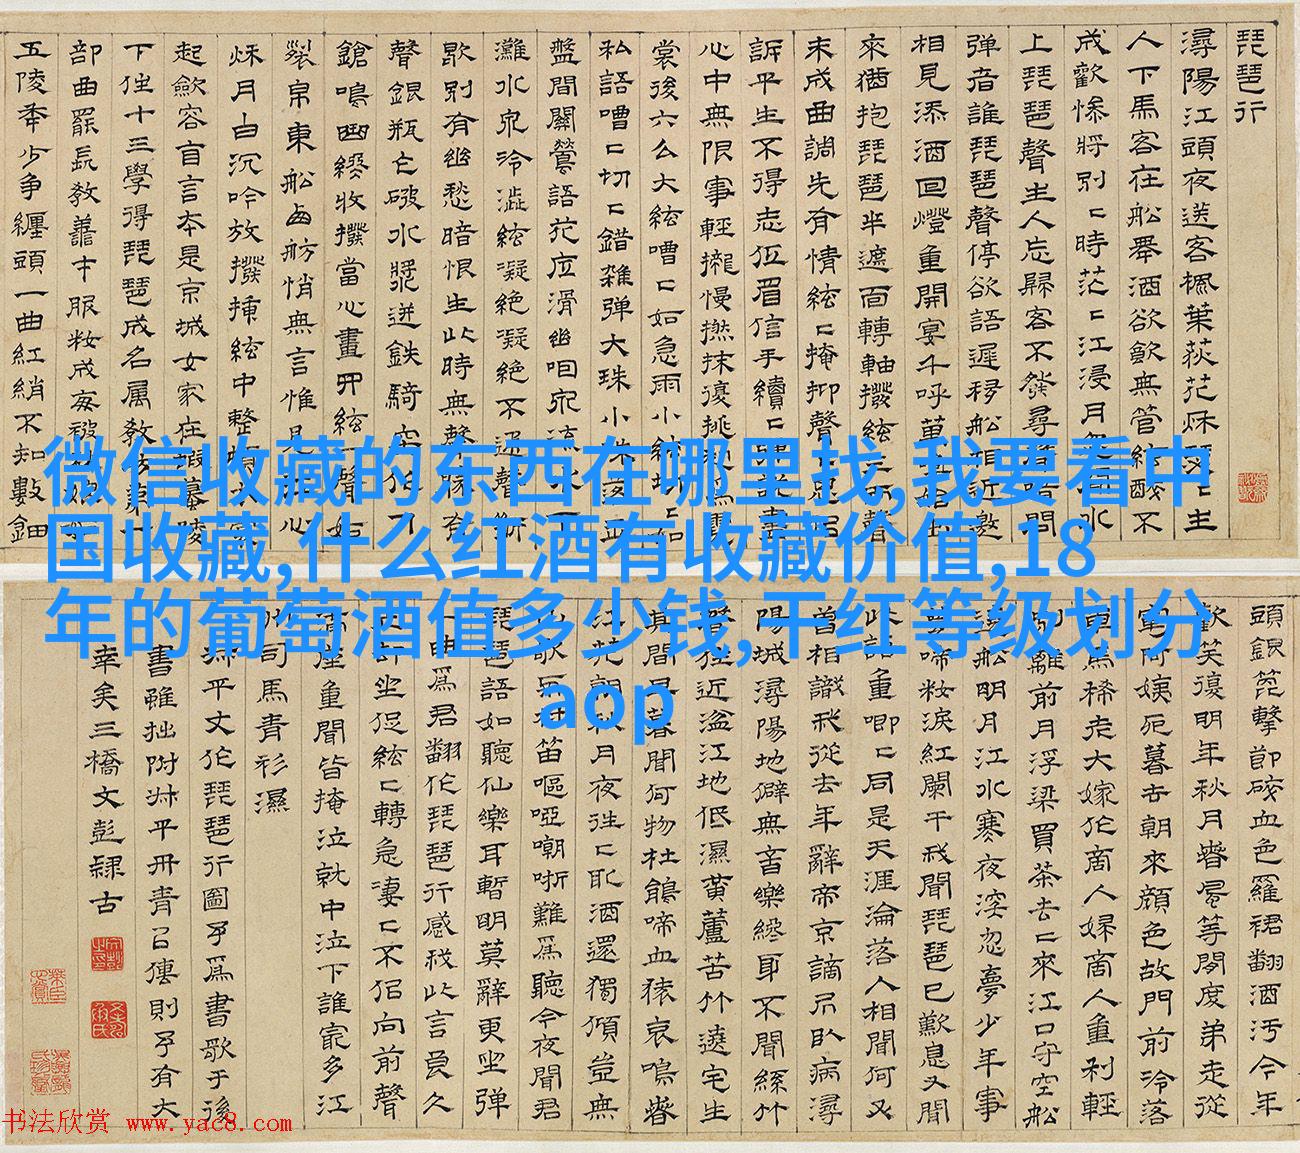 琵琶行
潯陽江頭夜送客楓葉荻花秋瑟〻主
人下馬客在船舉酒欲飲無管絃醉不
成歡慘將別〻時茫〻江浸月忽聞水
上琵琶聲主人忘歸客不發尋聲暗問
彈者誰琵琶聲停欲語遲移船相近邀
相見添酒回燈重開宴千呼萬喚始出
來猶抱琵琶半遮面轉軸撥絃三兩聲
未成曲調先有情絃〻掩抑聲〻思似
訴平生不得志低眉信手續〻彈說盡
心中無限事輕攏慢撚抹復挑初為霓
裳後六么大絃嘈〻如急雨小絃切〻如
私語嘈〻切〻錯雜彈大珠小珠落玉
盤間關鶯語花底滑幽咽泉流水下
灘水泉冷澁絃凝絕凝絕不通聲漸
歇別有幽愁暗恨生此時無聲勝有
聲銀瓶乍破水漿迸鉄騎突出刀
鎗鳴曲終收撥當心畫四絃一聲如
裂帛東船西舫悄無言惟見江心
秋月白沉吟放撥插絃中整頓衣裳
起歛容自言本是京城女家在蝦蟇陵
下住十三學得琵琶成名屬教坊第一
部曲罷長教善才服妝成每被秋娘妒
五陵年少爭纏頭一曲紅綃不知數鈿
微信收藏的东西在哪里找,我要看中
国收藏,什么红酒有收藏价值,18
年的葡萄酒值多少钱,干红等级划分
aop
頭銀篦擊節破血色羅裙翻酒污今年
歡笑復明年秋月春風等閒度弟走從
軍阿姨死暮去朝來顏色故門前冷落
車馬稀老大嫁作商人婦商人重利輕
別離前月浮梁買茶去〻來江口守空船
遶船明月江水寒夜深忽夢少年事
夢啼妝淚紅闌干我聞琵琶已歎息又聞
此語重唧〻同是天涯淪落人相聞何必
曾相識我從去年辭帝京謫居臥病潯
陽城潯陽地僻無音樂終歲不聞絲竹
聲住近湓江地低濕黃蘆苦竹遶宅生
其間旦暮聞何物杜鵑啼血猿哀鳴春
江花朝秋月夜往〻取酒還獨傾豈無
山歌與村笛嘔啞嘲哳難為聽今夜聞君
琵琶語如聽仙樂耳暫明莫辭更坐彈
一曲為君翻作琵琶行感我此言良久
立却坐促絃〻轉急凄〻不似向前聲
滿座重聞皆掩泣就中泣下誰最多江
州司馬青衫濕
書法欣赏 www.yac8.com